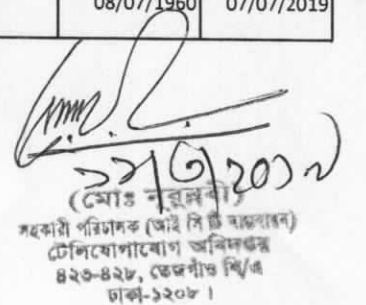 08/07/1960 07/07/2019
(মোঃ নবুন্নবী)
সহকারী পরিচালক (আই সি টি বাস্তবায়ন)
টেলিযোগাযোগ অধিদপ্তর
৪২৩-৪২৮, তেজগাঁও শি/এ
ঢাকা-১২০৮।